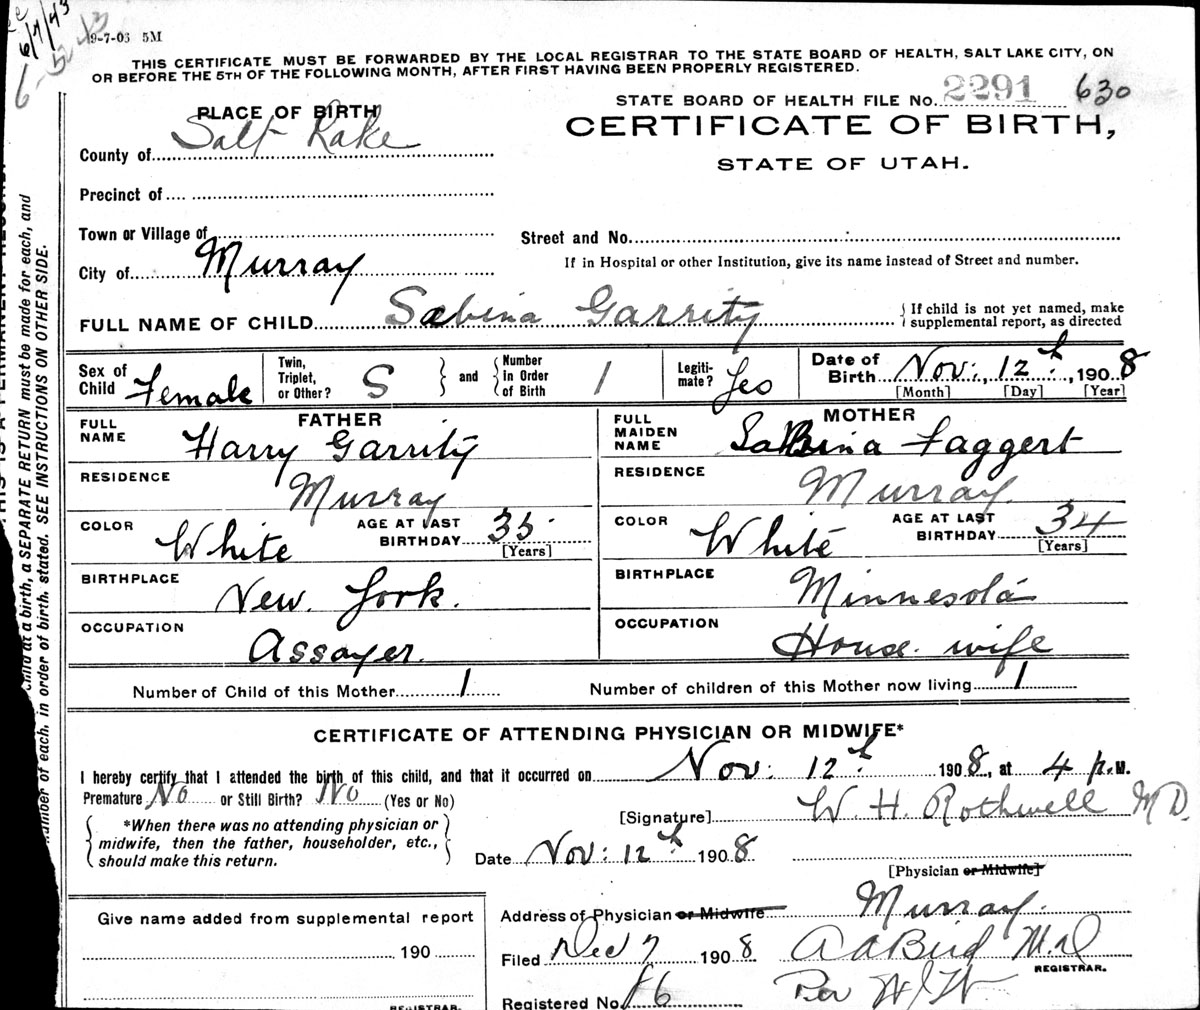 6/7/43
9-7-03 5M
THIS CERTIFICATE MUST BE FORWARDED BY THE LOCAL REGISTRAR TO THE STATE BOARD OF HEALTH, SALT LAKE CITY, ON
OR BEFORE THE 5TH OF THE FOLLOWING MONTH, AFTER FIRST HAVING BEEN PROPERLY REGISTERED.
STATE BOARD OF HEALTH FILE No. 2291 630
PLACE OF BIRTH
CERTIFICATE OF BIRTH,
STATE OF UTAH.
County of Salt Lake
Precinct of
Town or Village of
Street and No.
City of Murray
If in Hospital or other Institution, give its name instead of Street and number.
FULL NAME OF CHILD Sabina Garrity { If child is not yet named, make supplemental report, as directed
Sex of Child Female Twin, Triplet, or Other? S } and { Number in Order of Birth 1 Legitimate? Yes Date of Birth Nov. 12th, 1908
[Month] [Day] [Year]
FATHER MOTHER
FULL NAME Harry Garrity FULL MAIDEN NAME Sabina Faggert
RESIDENCE Murray RESIDENCE Murray
COLOR White AGE AT LAST BIRTHDAY 35 [Years] COLOR White AGE AT LAST BIRTHDAY 34 [Years]
BIRTHPLACE New York. BIRTHPLACE Minnesota
OCCUPATION Assayer. OCCUPATION House wife
Number of Child of this Mother 1 Number of children of this Mother now living 1
CERTIFICATE OF ATTENDING PHYSICIAN OR MIDWIFE*
I hereby certify that I attended the birth of this child, and that it occurred on Nov: 12th 1908, at 4 P.M.
Premature No or Still Birth? No (Yes or No)
[Signature] W. H. Rothwell MD.
{ *When there was no attending physician or midwife, then the father, householder, etc., should make this return. }
Date Nov: 12th 1908
[Physician or Midwife]
Give name added from supplemental report
190
REGISTRAR.
Address of Physician or Midwife Murray.
Filed Dec 7 1908 A A Bird M.D
REGISTRAR.
Registered No. 86 Per
child at a birth, a SEPARATE RETURN must be made for each, and
number of each, in order of birth, stated. SEE INSTRUCTIONS ON OTHER SIDE.
THIS IS A PERMANENT RECORD.